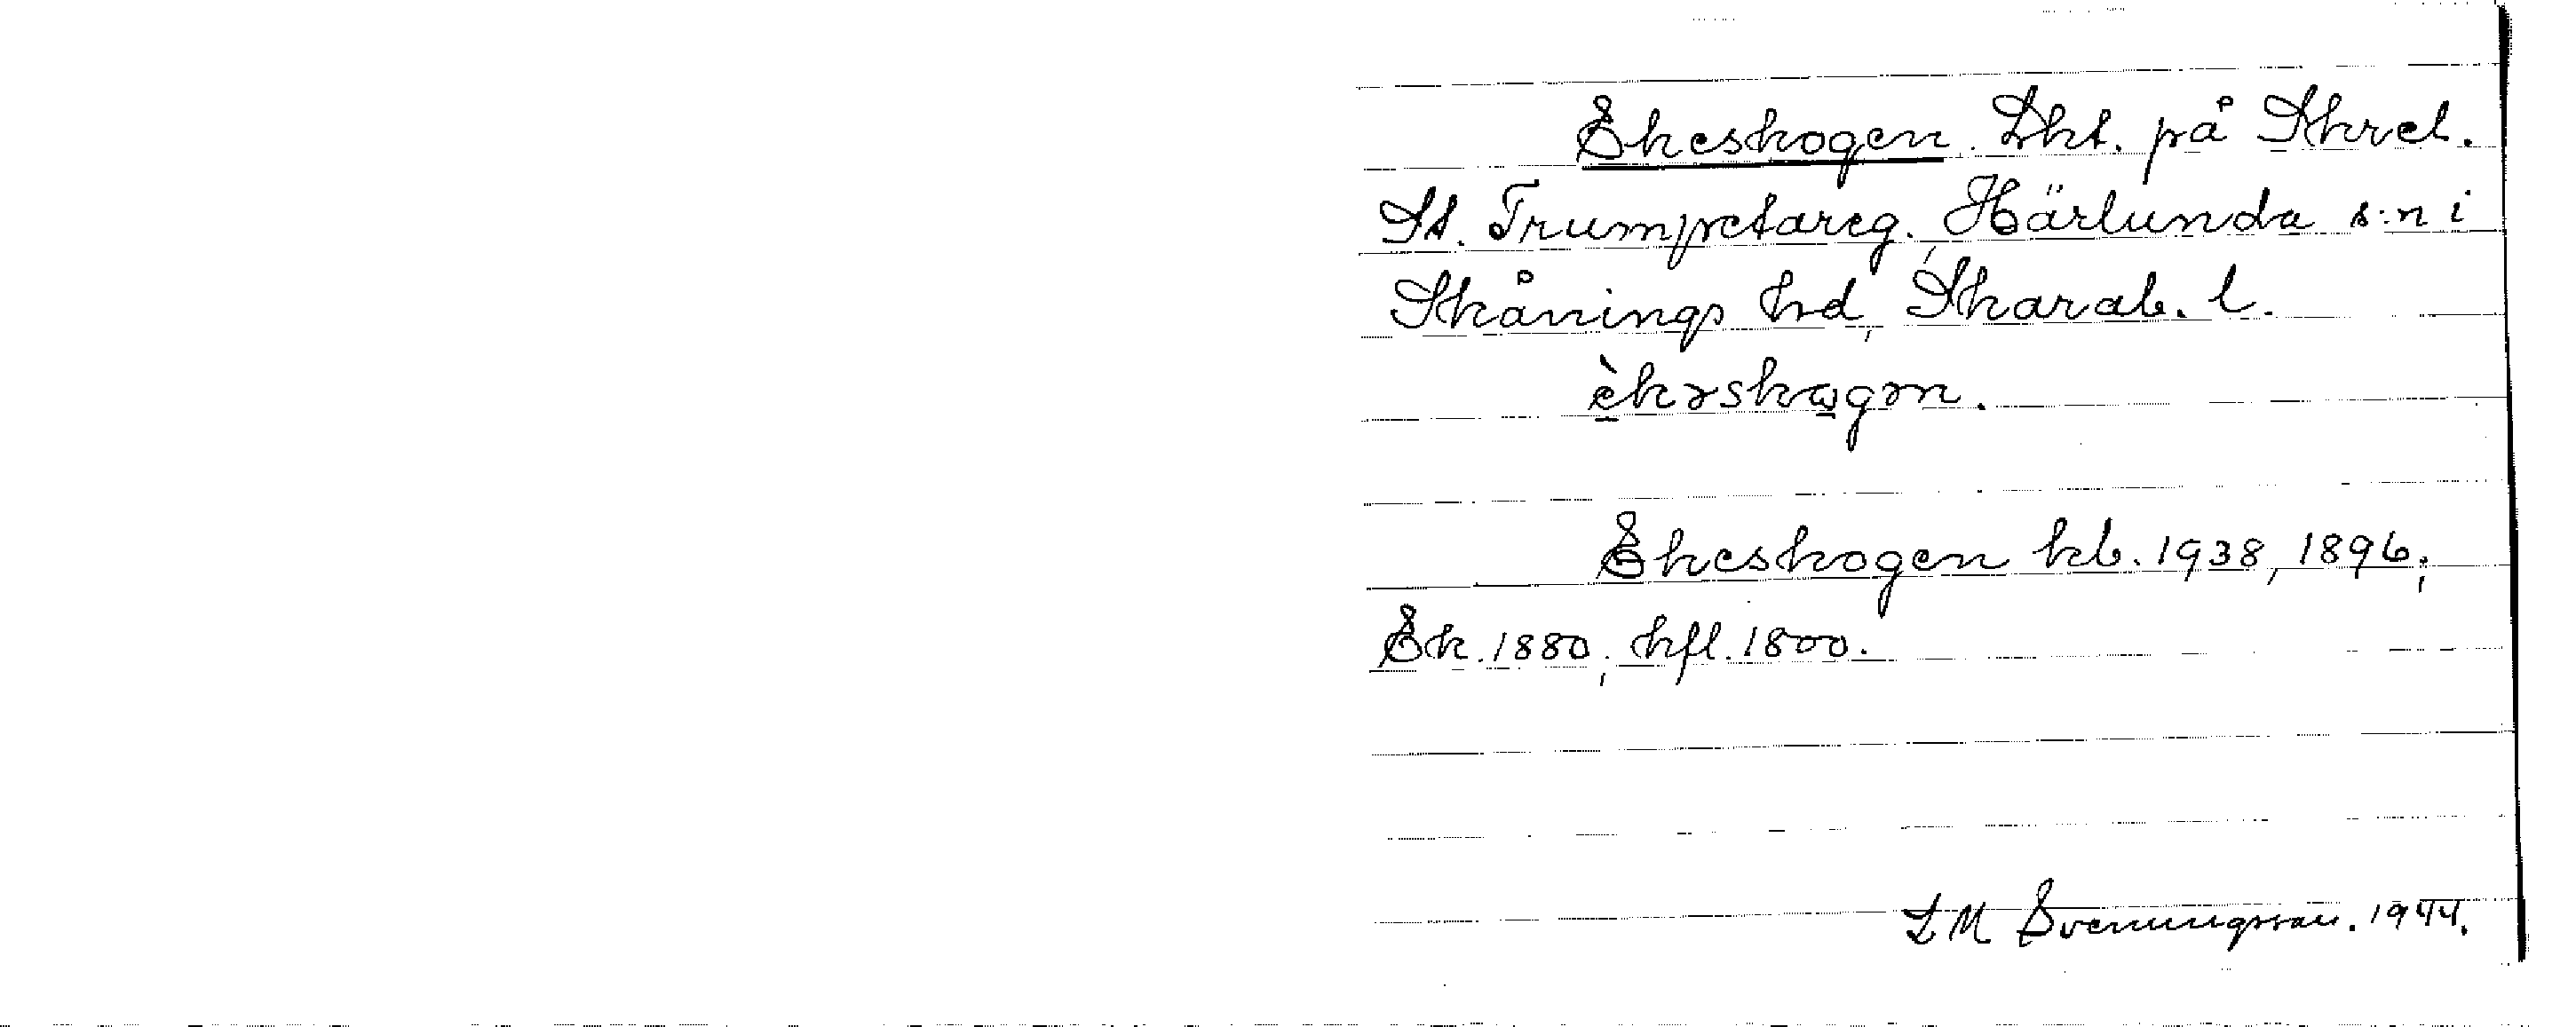 Ekeskogen. Lht. på Skrel.
St. Trumpetareg. Härlunda s:n i
Skånings hd, Skarab. l.
èkəskωgən.
Ekeskogen kb. 1938, 1896;
Ek. 1880; hfl. 1800.
L M Svenungsson. 1944.